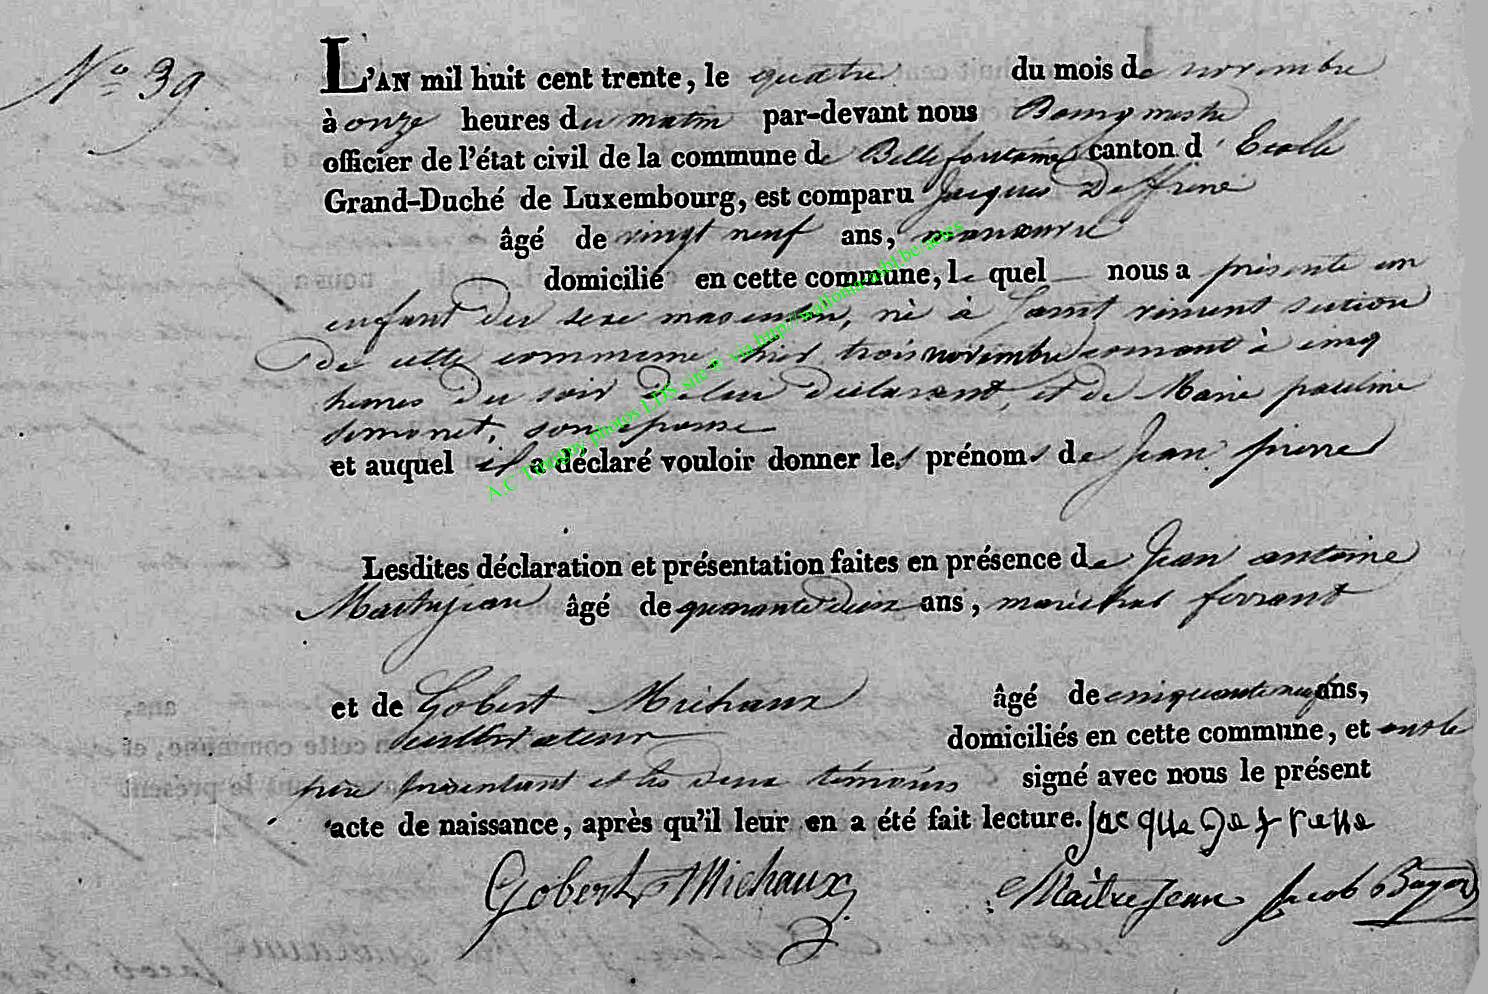 N° 39.
L'AN mil huit cent trente, le quatre du mois de novembre
à onze heures du matin par-devant nous Bourgmestre
officier de l'état civil de la commune de Bellefontaine canton d'Etalle
Grand-Duché de Luxembourg, est comparu Jacques Deffrene
âgé de vingt neuf ans, manœuvre
domicilié en cette commune, le quel nous a présenté un
enfant du sexe masculin, né à Saint vincent section
de cette commune, hier trois novembre courant à cinq
heures du soir de lui déclarant, et de Marie pauline
simonet, son épouse
et auquel il a déclaré vouloir donner les prénoms de Jean pierre
Lesdites déclaration et présentation faites en présence de Jean antoine
Maitrejean âgé de quarante deux ans, maréchal ferrant
et de Gobert Michaux âgé de cinquante neuf ans,
cultivateur domiciliés en cette commune, et ont le
père présentant et les deux témoins signé avec nous le présent
acte de naissance, après qu'il leur en a été fait lecture. Jacque Defrene
Gobert Michaux MaitreJean Jacob
A.C Tintigny photos LDS site © via http://wallonia-asbl.be-actes